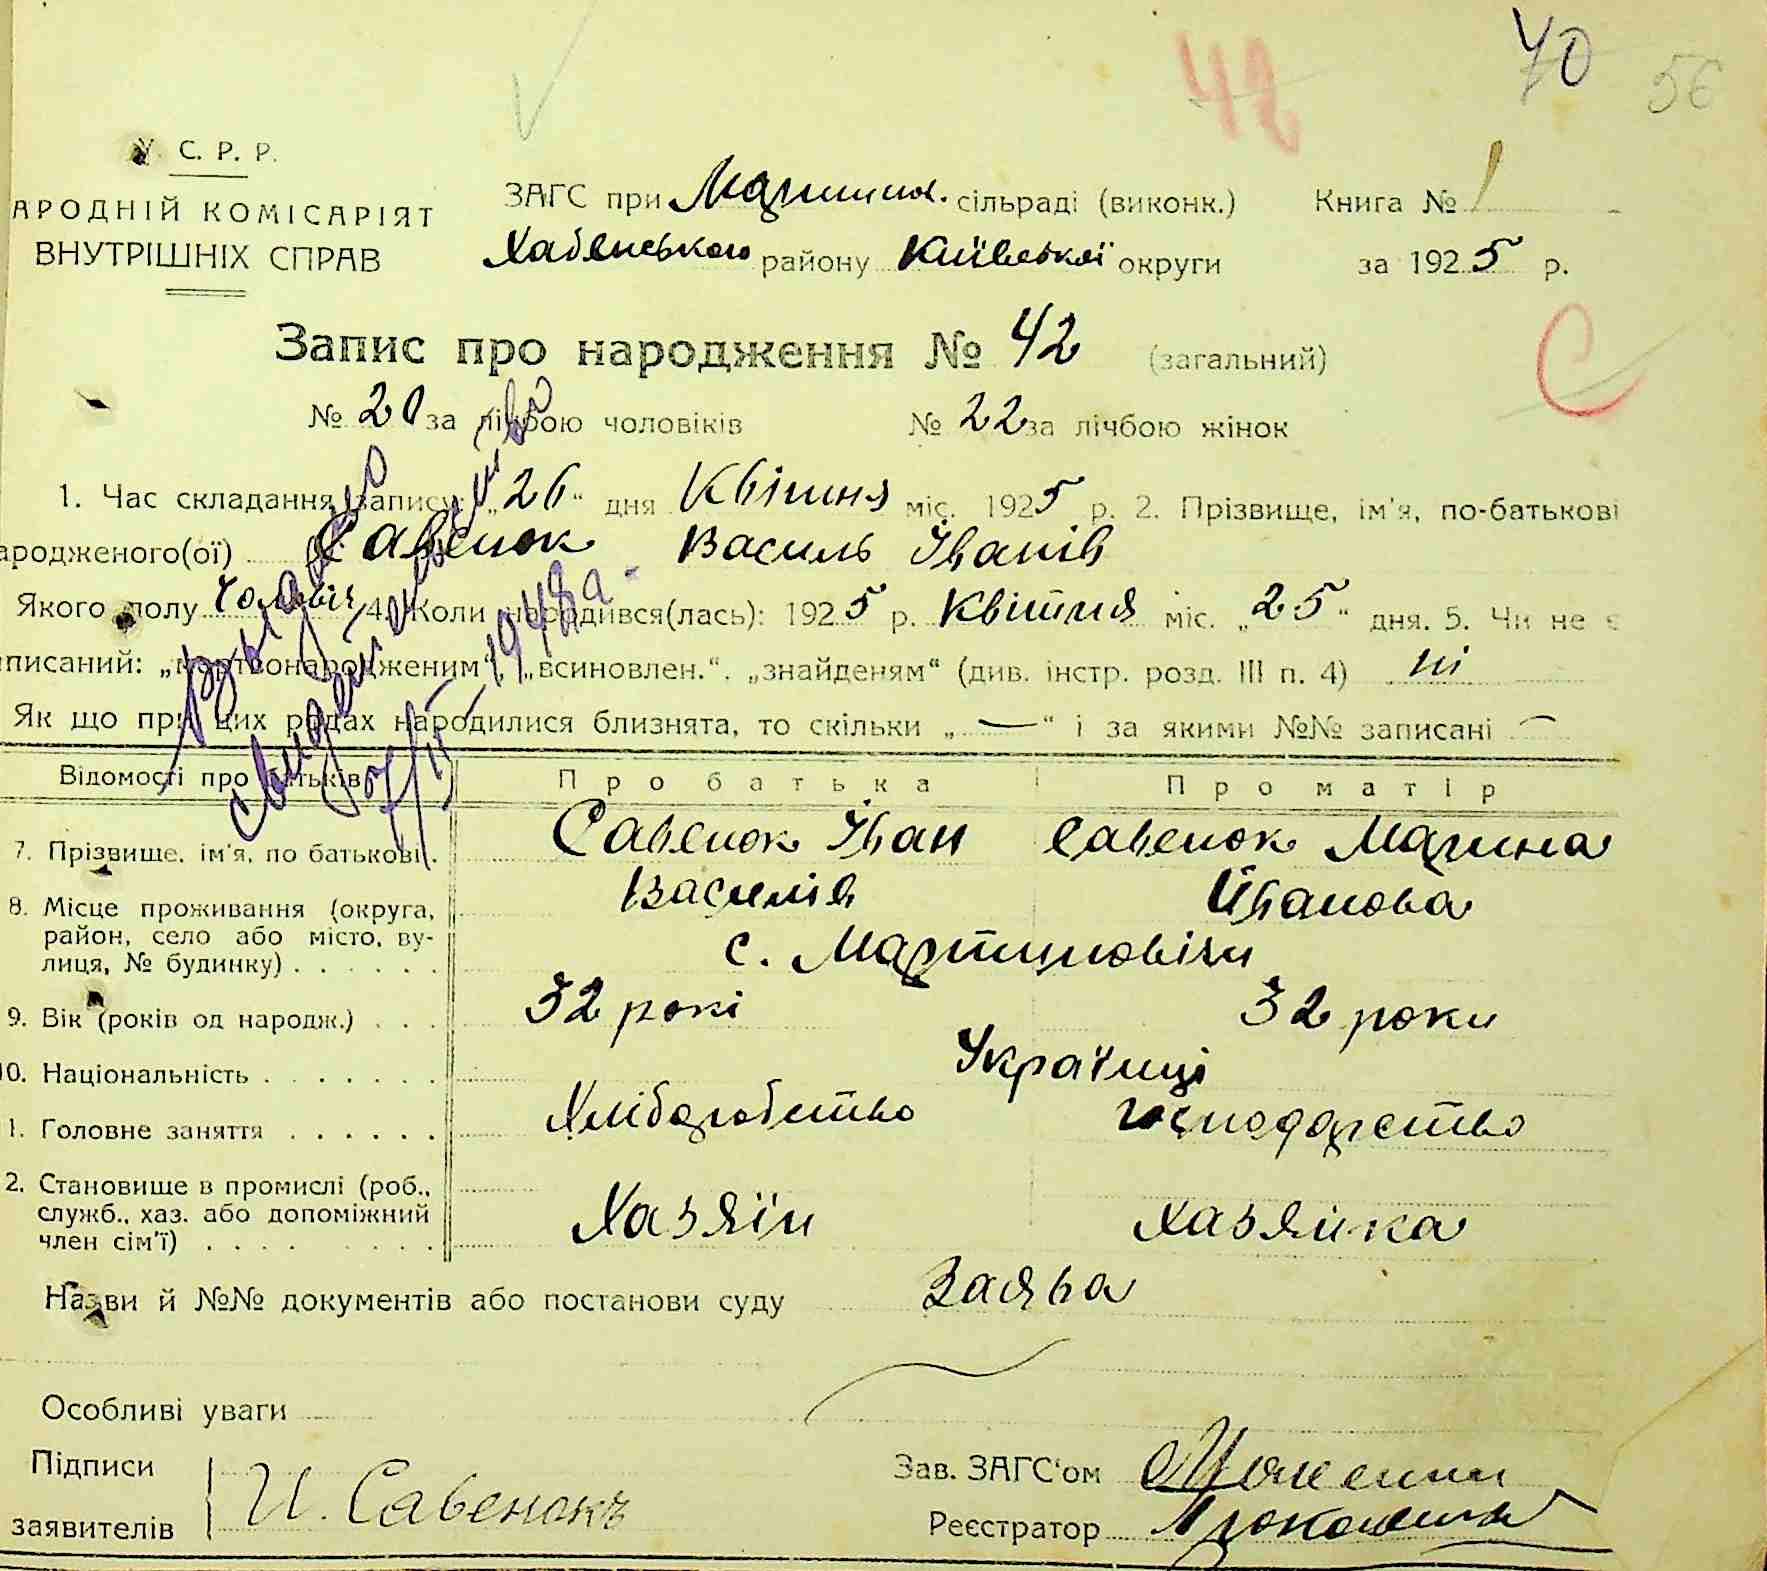 42 40 56
У. С. Р. Р.
АРОДНІЙ КОМІСАРІЯТ
ВНУТРІШНІХ СПРАВ
ЗАГС при Мартинов. сільраді (виконк.) Книга № 1
Хабенського району Київської округи за 1925 р.
Запис про народження № 42 (загальний)
С
№ 20 за лічбою чоловіків № 22 за лічбою жінок
1. Час складання запису: „26“ дня Квітня міс. 1925 р. 2. Прізвище, ім'я, по-батькові
ародженого(ої) Савенок Василь Іванів
Якого полу Чоловіч 4. Коли народився(лась): 1925 р. Квітня міс. „25“ дня. 5. Чи не є
писаний: „мертвонародженим“, „всиновлен.“. „знайденям“ (див. інстр. розд. III п. 4) ні
Як що при цих родах народилися близнята, то скільки „—“ і за якими №№ записані —
Відомості про батьків Про батька Про матір
7. Прізвище, ім'я, по батькові. Савенок Іван Савенок Марина
Василів Иванова
8. Місце проживання (округа,
район, село або місто, ву-
лиця, № будинку) . . . . . . с. Мартиновічи
9. Вік (років од народж.) . . . 32 рокі 32 роки
10. Національність . . . . . . . Україиці
1. Головне заняття . . . . . . Хліборобство господарство
2. Становище в промислі (роб.,
служб., хаз. або допоміжний
член сім'ї) . . . . . . . . Хазяїн Хазяйка
Назви й №№ документів або постанови суду Заява
Особливі уваги
Підписи
заявителів И. Савенокъ
Зав. ЗАГС'ом
Реєстратор
Выдано
свидетельство
1948г.